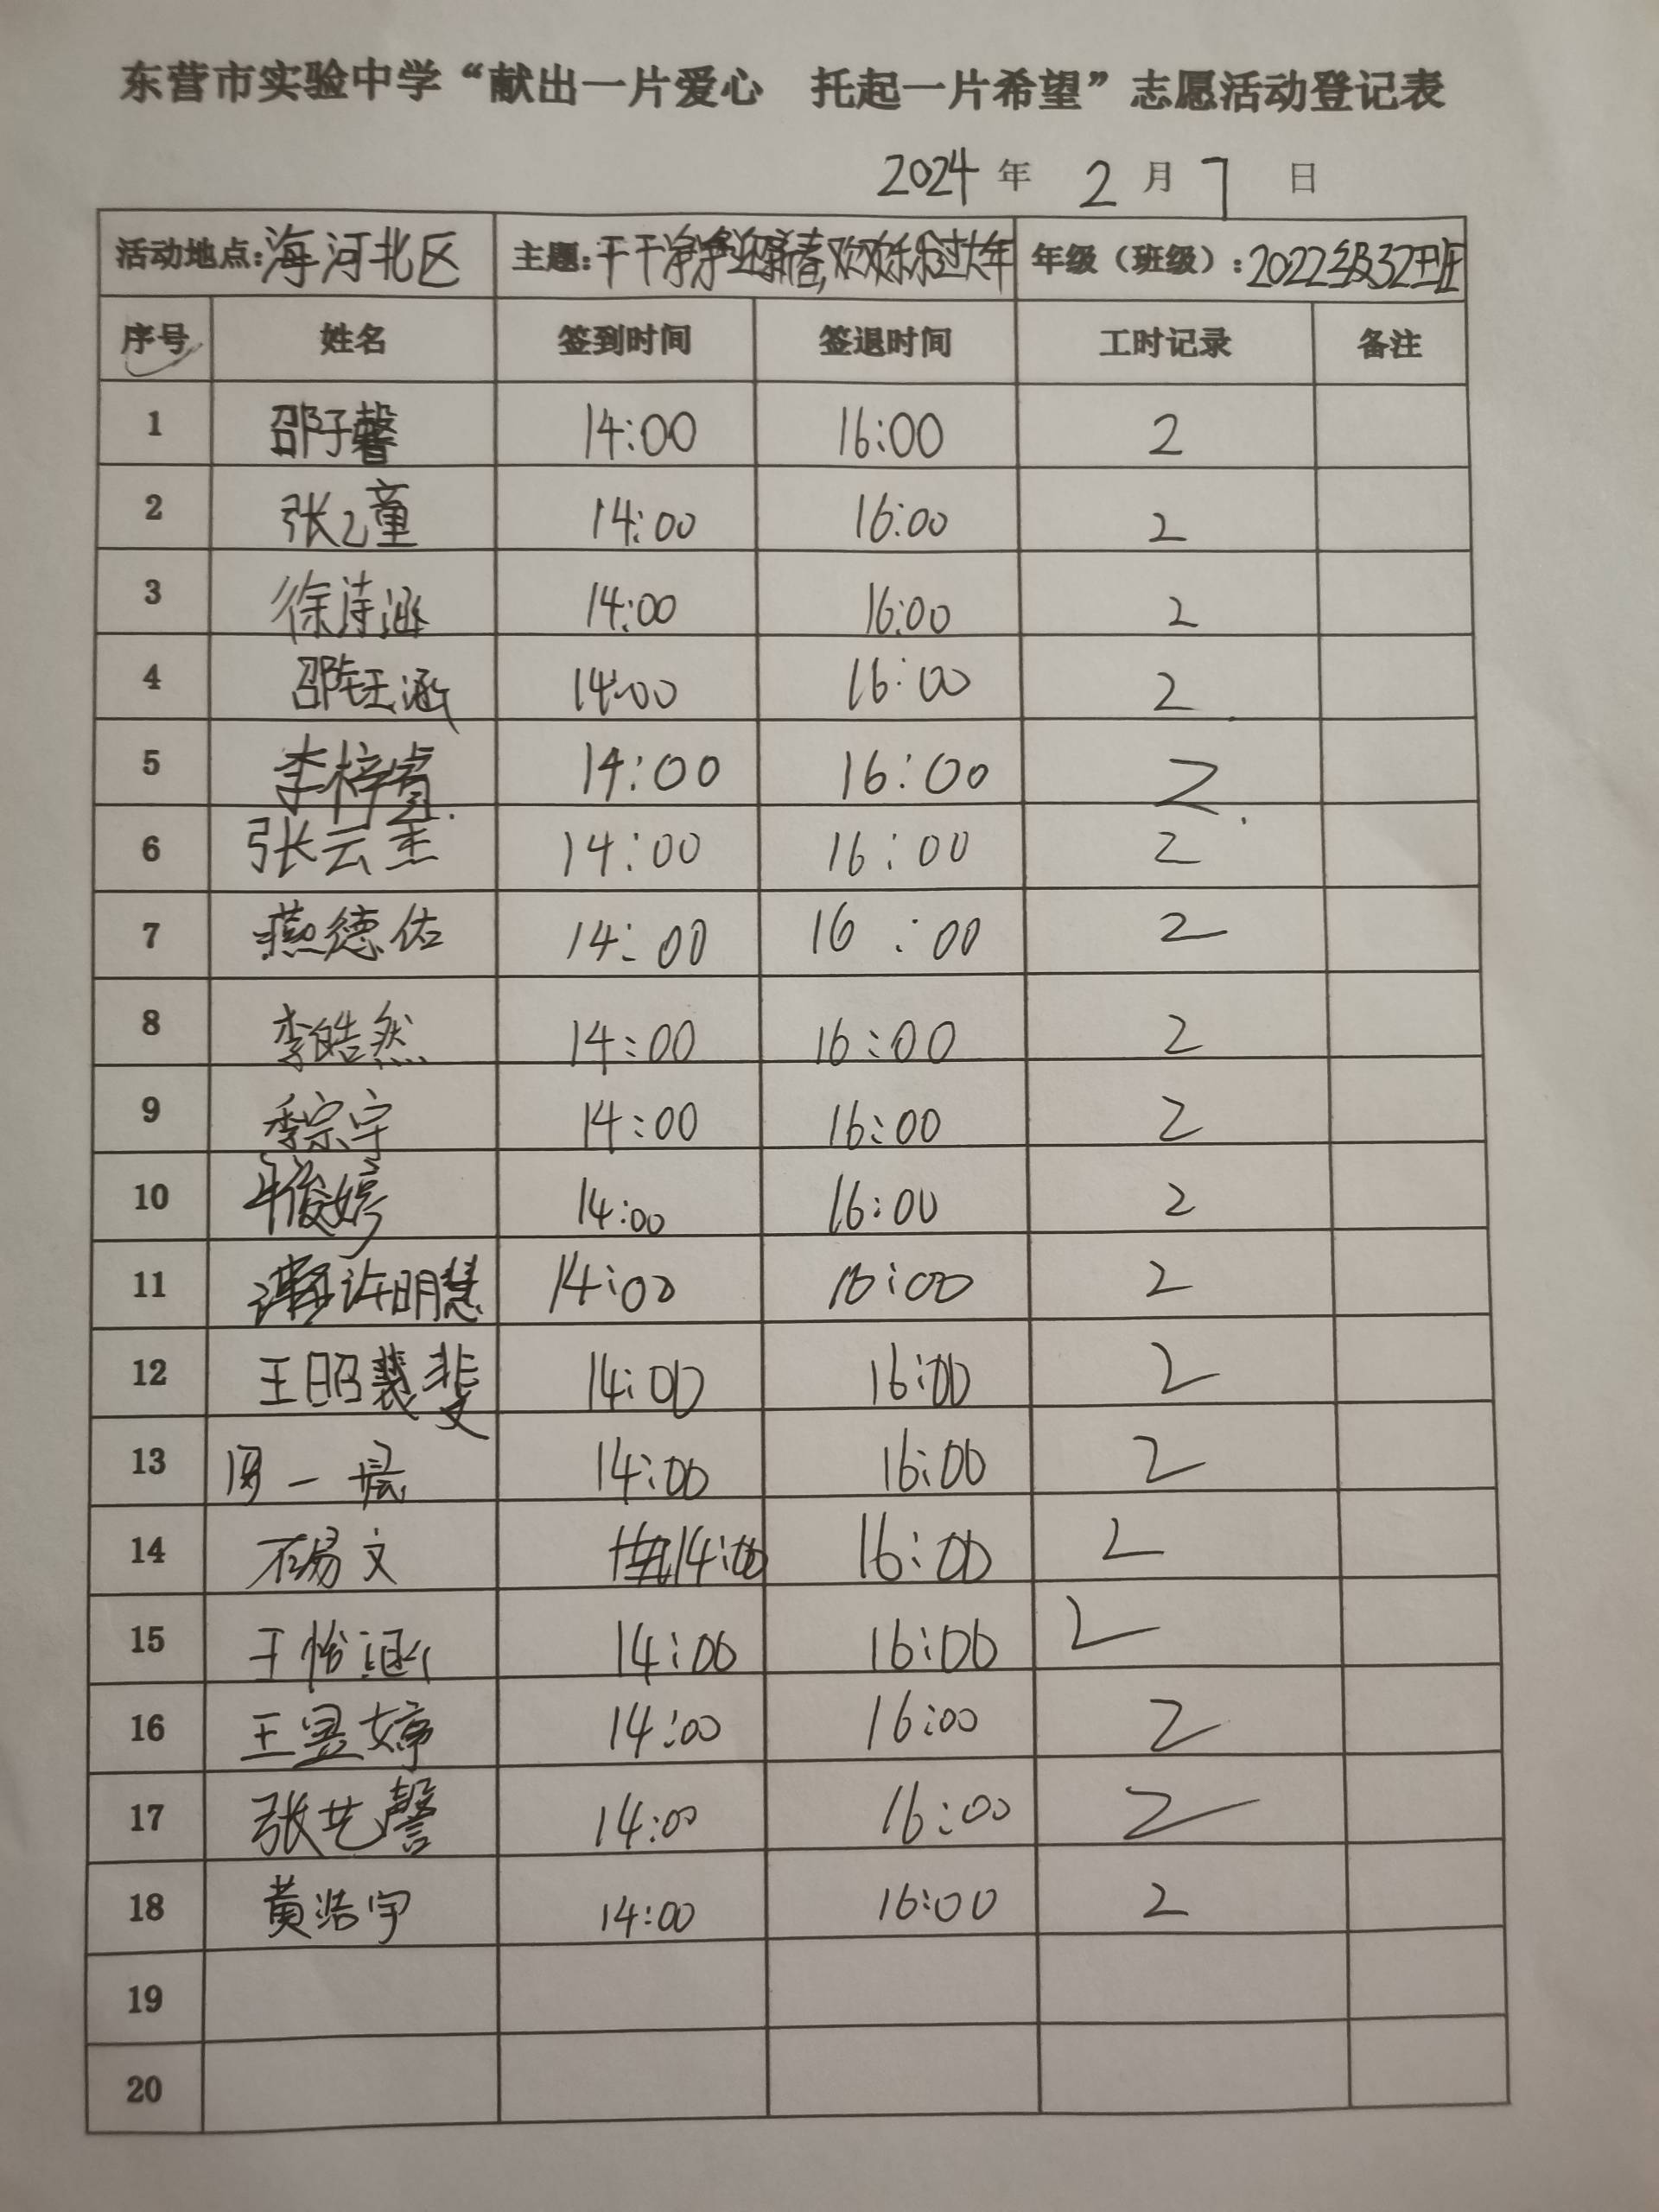 东营市实验中学“献出一片爱心 托起一片希望”志愿活动登记表
2024 年 2 月 7 日
活动地点:海河北区 主题:干干净净迎新春,欢欢乐乐过大年 年级（班级）:2022级32班
序号 姓名 签到时间 签退时间 工时记录 备注
1 邵子馨 14:00 16:00 2
2 张乙童 14:00 16:00 2
3 徐诗涵 14:00 16:00 2
4 邵钰涵 14:00 16:00 2
5 李梓睿 14:00 16:00 2
6 张云圭 14:00 16:00 2
7 燕德佑 14:00 16:00 2
8 李皓然 14:00 16:00 2
9 季宗宇 14:00 16:00 2
10 牟俊婷 14:00 16:00 2
11 许明慧 14:00 16:00 2
12 王昭斐 14:00 16:00 2
13 周一 14:00 16:00 2
14 石易文 14:00 16:00 2
15 王怡涵 14:00 16:00 2
16 王昱婷 14:00 16:00 2
17 张艺馨 14:00 16:00 2
18 黄浩宇 14:00 16:00 2
19
20